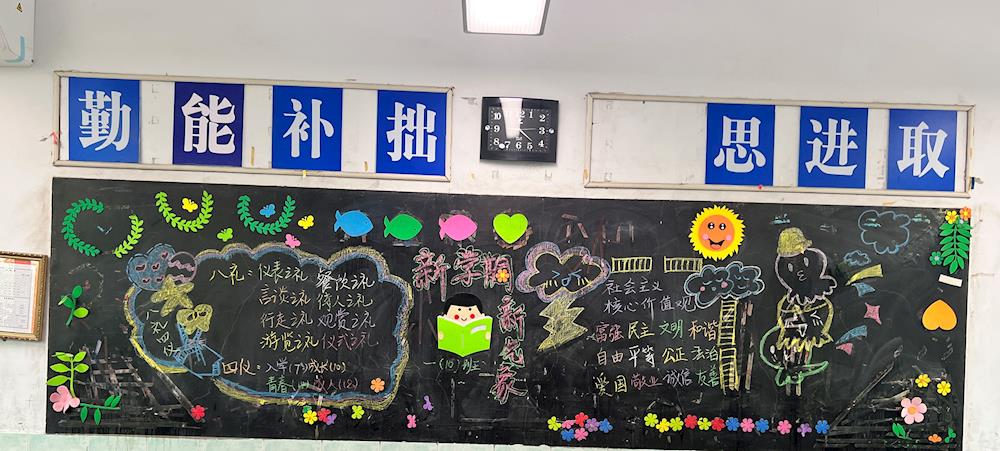 勤能补拙
思进取
新学期
新气象
八礼四仪
八礼：仪表之礼 餐饮之礼
言谈之礼 待人之礼
行走之礼 观赏之礼
游览之礼 仪式之礼
四仪：入学(7)成长(10)
青春(14)成人(18)
一(18)班
社会主义
核心价值观
富强 民主 文明 和谐
自由 平等 公正 法治
爱国 敬业 诚信 友善